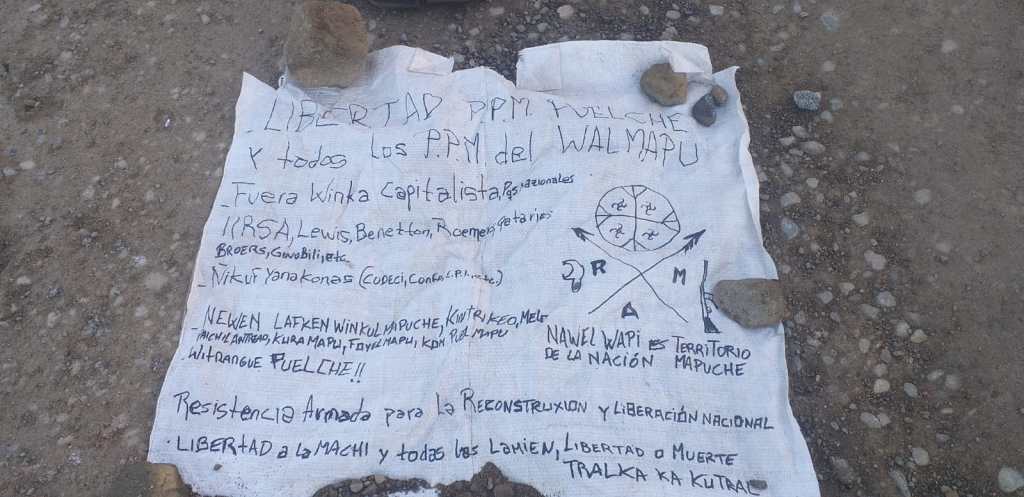 _LIBERTAD P.P.M. PUELCHE
Y todos los P.P.M. del WALMAPU
_Fuera Winka Capitalista,
Lewis, Benetton,
BROERS, etc
_Nikuf Yanakonas (CODECI,
_NEWEN LAFKEN WINKUL MAPUCHE, KINTRIKEO,
KURA MAPU, FOYEL MAPU, KOM PUEL MAPU
WITRANGUE PUELCHE!!
R
M
A
NAWEL WAPI ES TERRITORIO
DE LA NACIÓN MAPUCHE
Resistencia Armada para la RECONSTRUXION y LIBERACIÓN NACIONAL
LIBERTAD a la MACHI y todas las LAMIEN, LIBERTAD O MUERTE
TRALKA KA KUTRAL